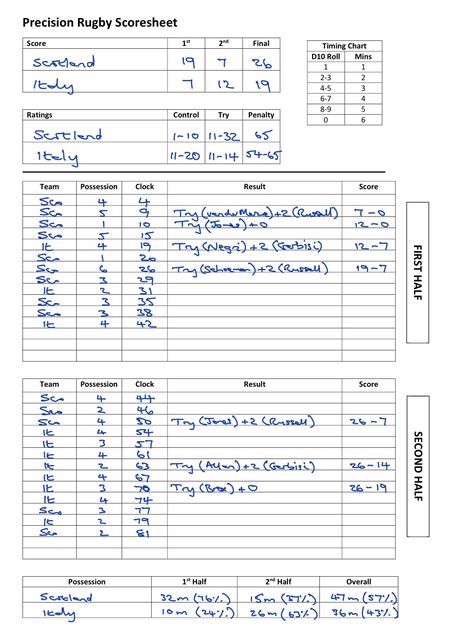 Precision Rugby Scoresheet
Score 1st 2nd Final
Scotland 19 7 26
Italy 7 12 19
Timing Chart
D10 Roll Mins
1 1
2-3 2
4-5 3
6-7 4
8-9 5
0 6
Ratings Control Try Penalty
Scotland 1-10 11-32 65
Italy 11-20 11-14 54-65
Team Possession Clock Result Score
Sco 4 4
Sco 5 9 Try (van der Merwe)+2 (Russell) 7-0
Sco 1 10 Try (Jones)+0 12-0
Sco 5 15
It 4 19 Try (Negri)+2 (Garbisi) 12-7
Sco 1 20
Sco 6 26 Try (Schoeman)+2 (Russell) 19-7
Sco 3 29
It 2 31
Sco 3 35
Sco 3 38
It 4 42
FIRST HALF
Team Possession Clock Result Score
Sco 4 44
Sco 2 46
Sco 4 50 Try (Jones)+2 (Russell) 26-7
It 4 54
It 3 57
It 4 61
It 2 63 Try (Allan)+2 (Garbisi) 26-14
It 4 67
It 3 70 Try (Brex)+0 26-19
It 4 74
Sco 3 77
It 2 79
Sco 2 81
SECOND HALF
Possession 1st Half 2nd Half Overall
Scotland 32m (76%) 15m (37%) 47m (57%)
Italy 10m (24%) 26m (63%) 36m (43%)